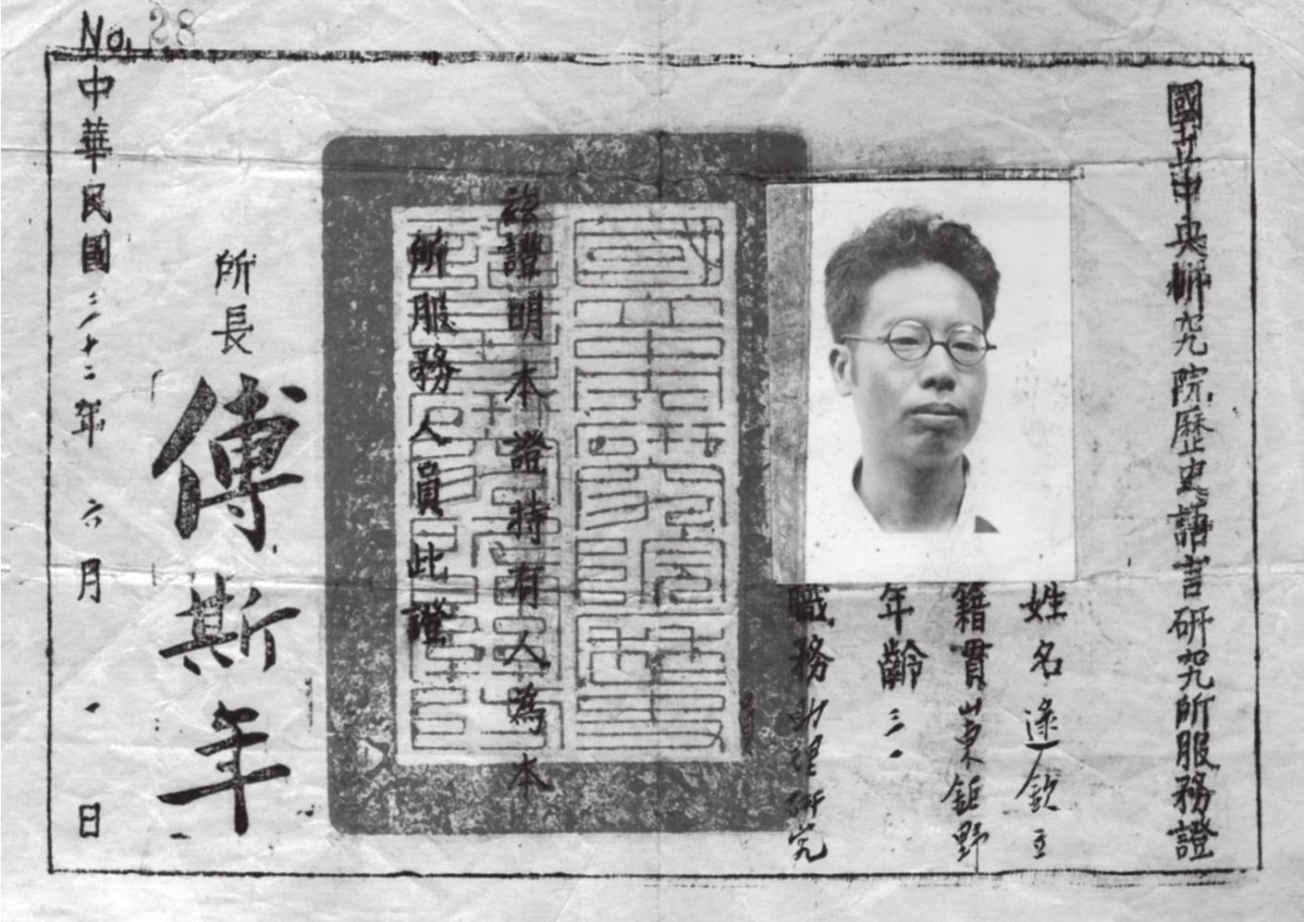 No. 28
國立中央研究院歷史語言研究所服務證
姓名 逯欽立
籍貫 山東鉅野
年齡 三一
職務 助理研究
茲證明本證持有人為本
所服務人員此證
所長 傅斯年
中華民國三十二年 六月 一日